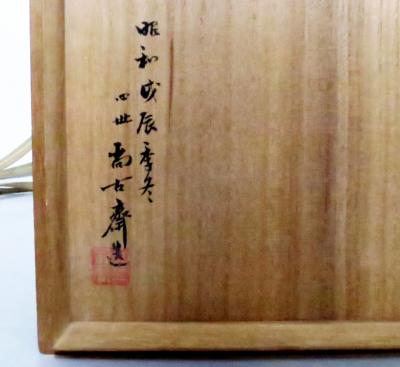 昭和戊辰季冬
四世尚古齋造